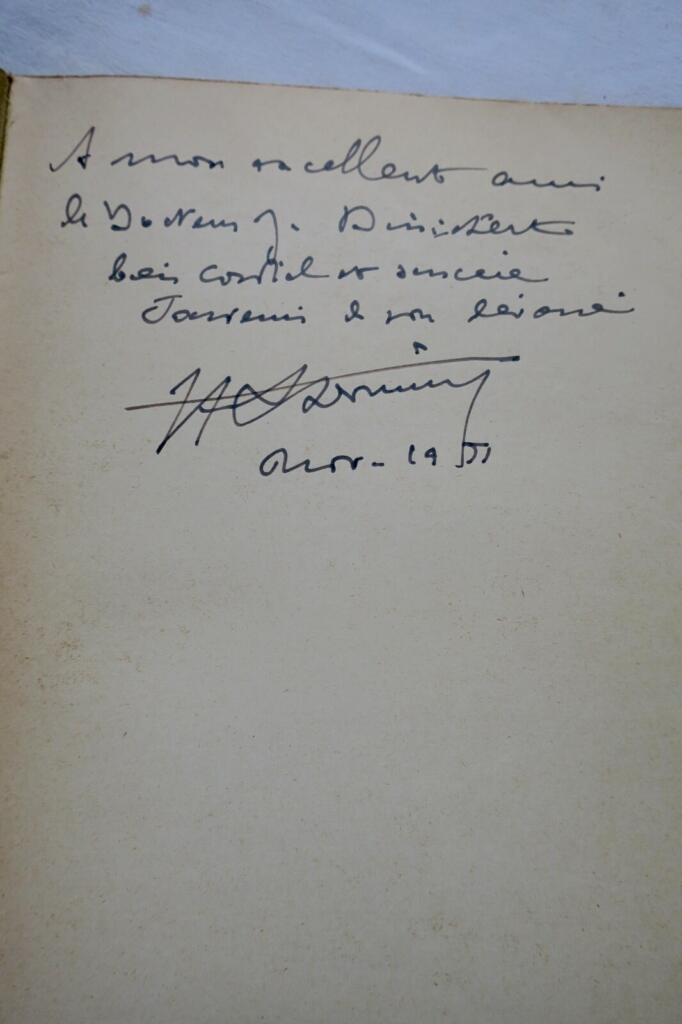 A mon excellent ami
le Docteur J.
bien cordial et sincère
Souvenir de son dévoué
Nov. - 1951